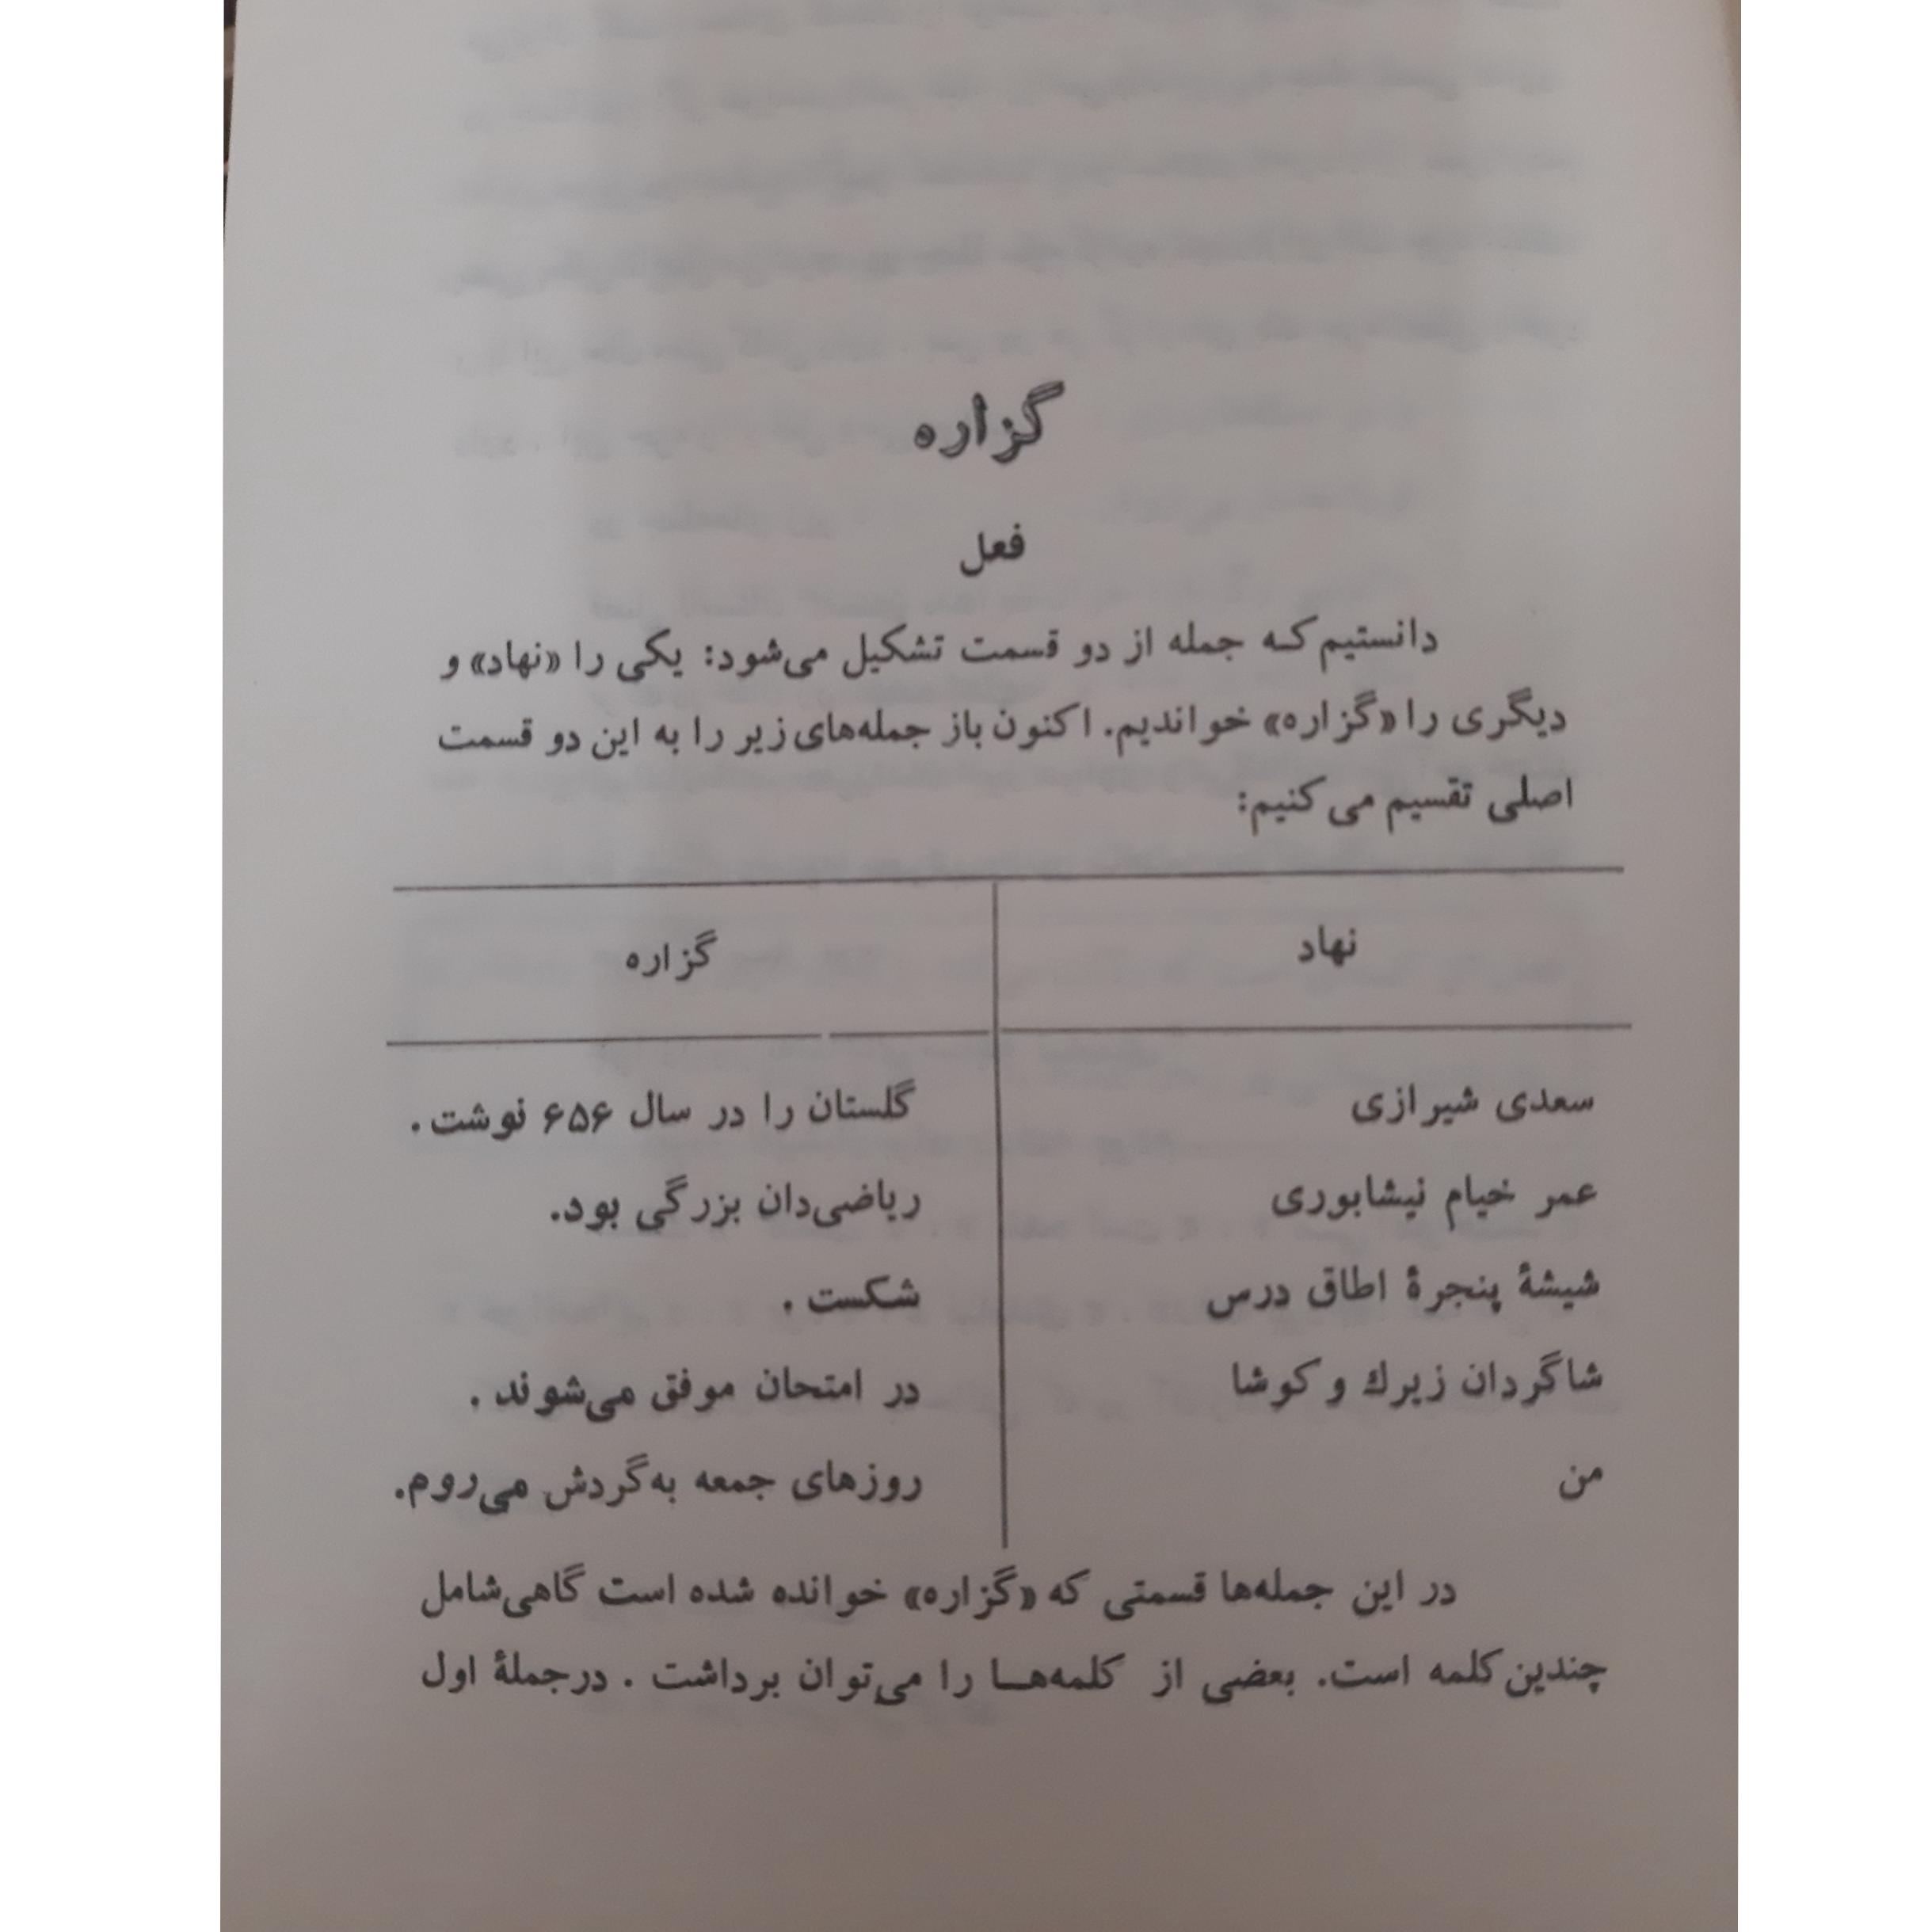 گزاره
فعل
دانستیم که جمله از دو قسمت تشکیل می‌شود: یکی را «نهاد» و
دیگری را «گزاره» خواندیم. اکنون باز جمله‌های زیر را به این دو قسمت
اصلی تقسیم می‌کنیم:
نهاد گزاره
سعدی شیرازی گلستان را در سال ۶۵۶ نوشت.
عمر خیام نیشابوری ریاضی‌دان بزرگی بود.
شیشهٔ پنجرهٔ اطاق درس شکست.
شاگردان زیرك و کوشا در امتحان موفق می‌شوند.
من روزهای جمعه به‌گردش می‌روم.
در این جمله‌ها قسمتی که «گزاره» خوانده شده است گاهی شامل
چندین کلمه است. بعضی از کلمه‌هـا را می‌توان برداشت. درجملهٔ اول